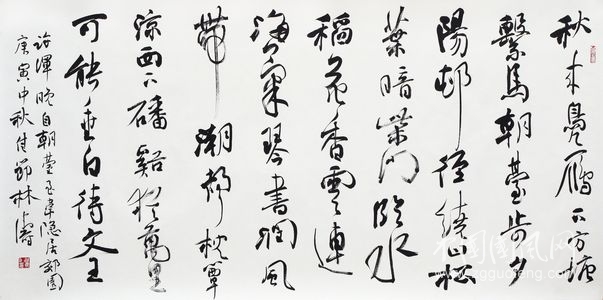 秋来鳧雁下方塘
繫馬朝臺步夕
陽邨徑繞山松
葉暗柴门臨水
稻花香雲連
海氣琴書潤風
帶潮聲枕簟
涼西下磻谿猶萬里
可能垂白待文王
許渾晚自朝臺至韋隱居郊園
庚寅中秋佳節林濤
中国国风网